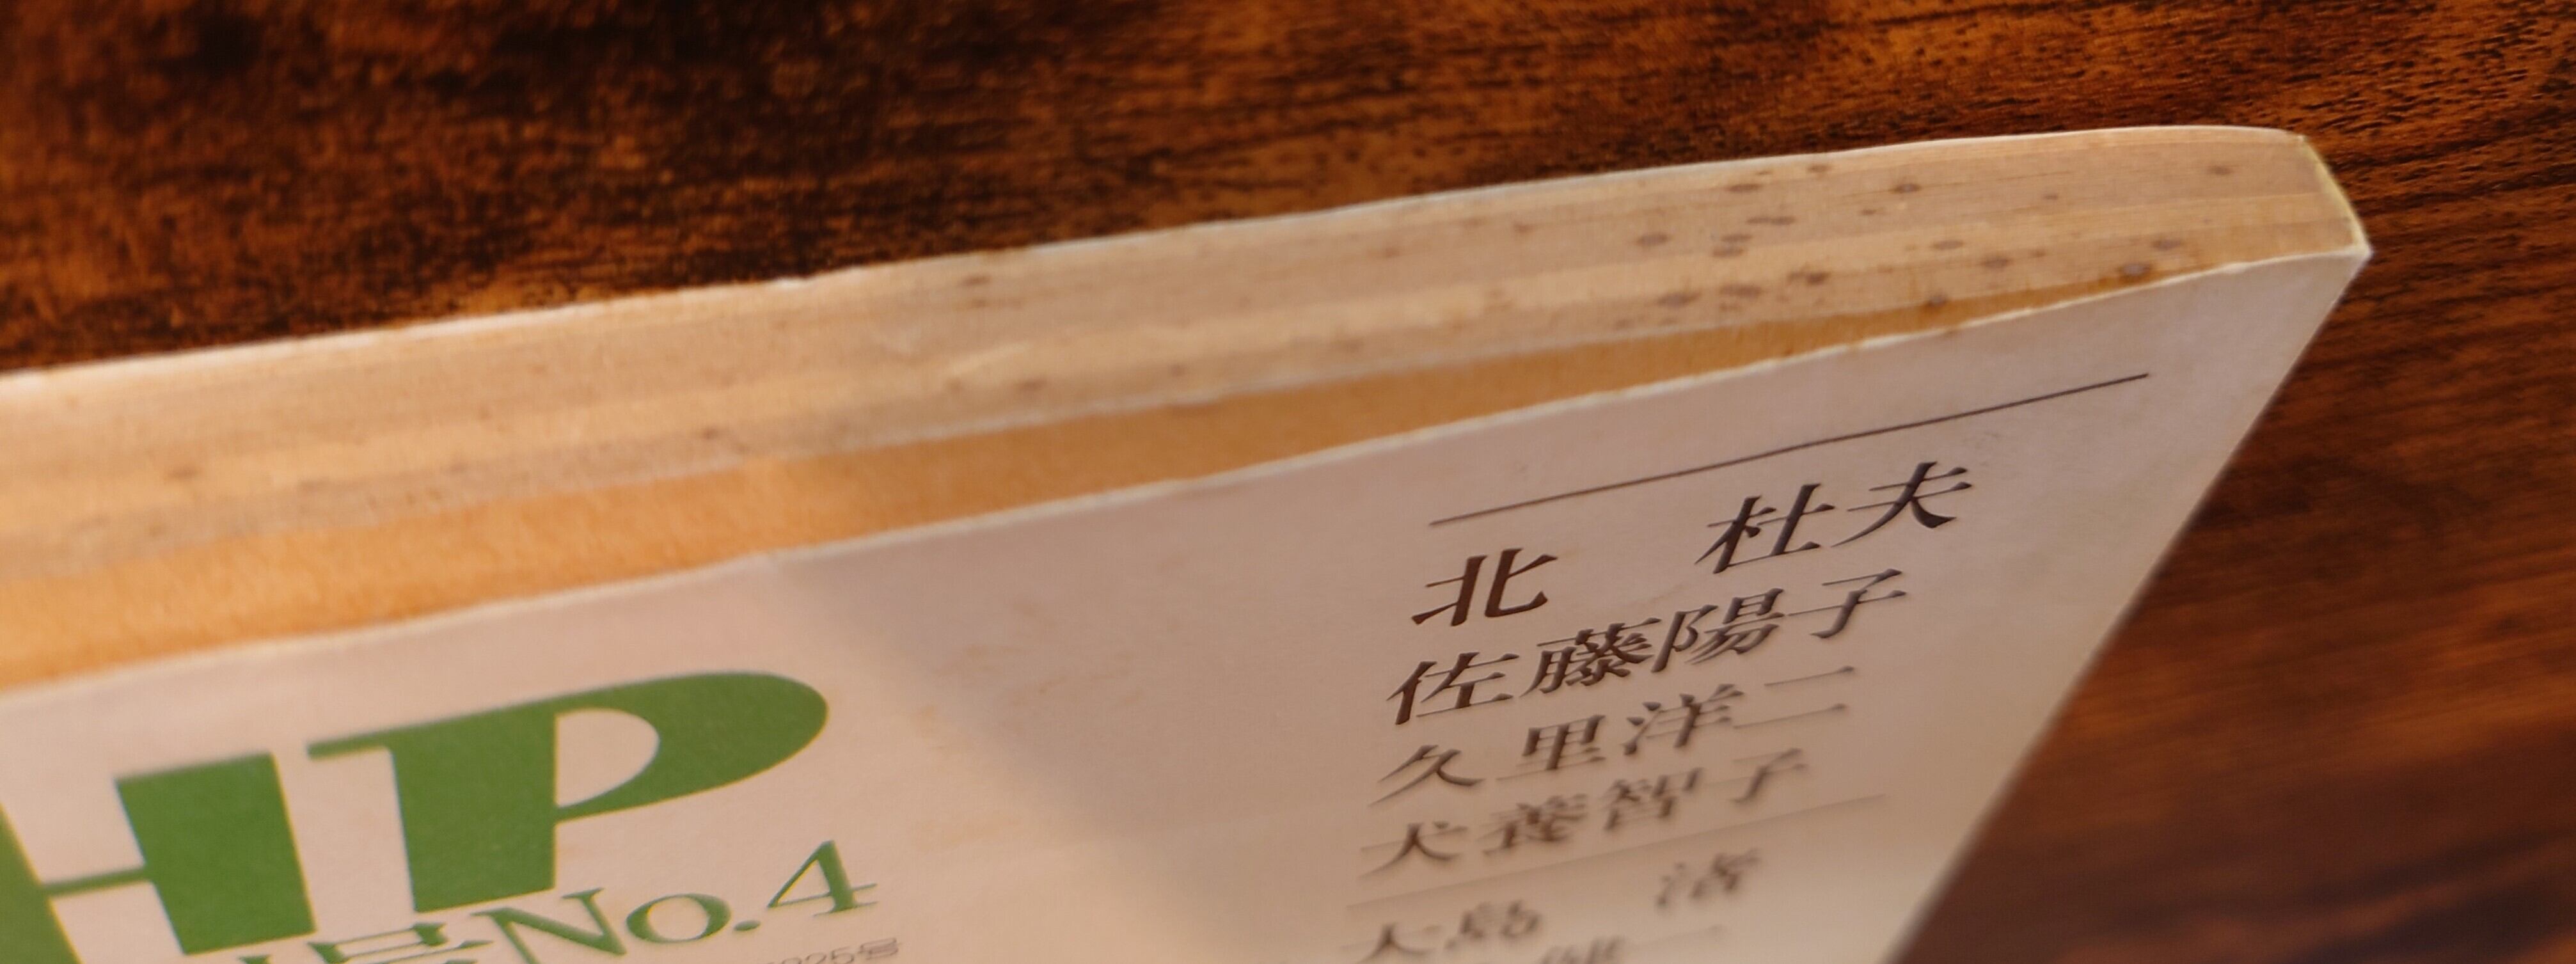 HP
号No.4
825号
北 杜夫
佐藤陽子
久里洋二
犬養智子
大島 渚